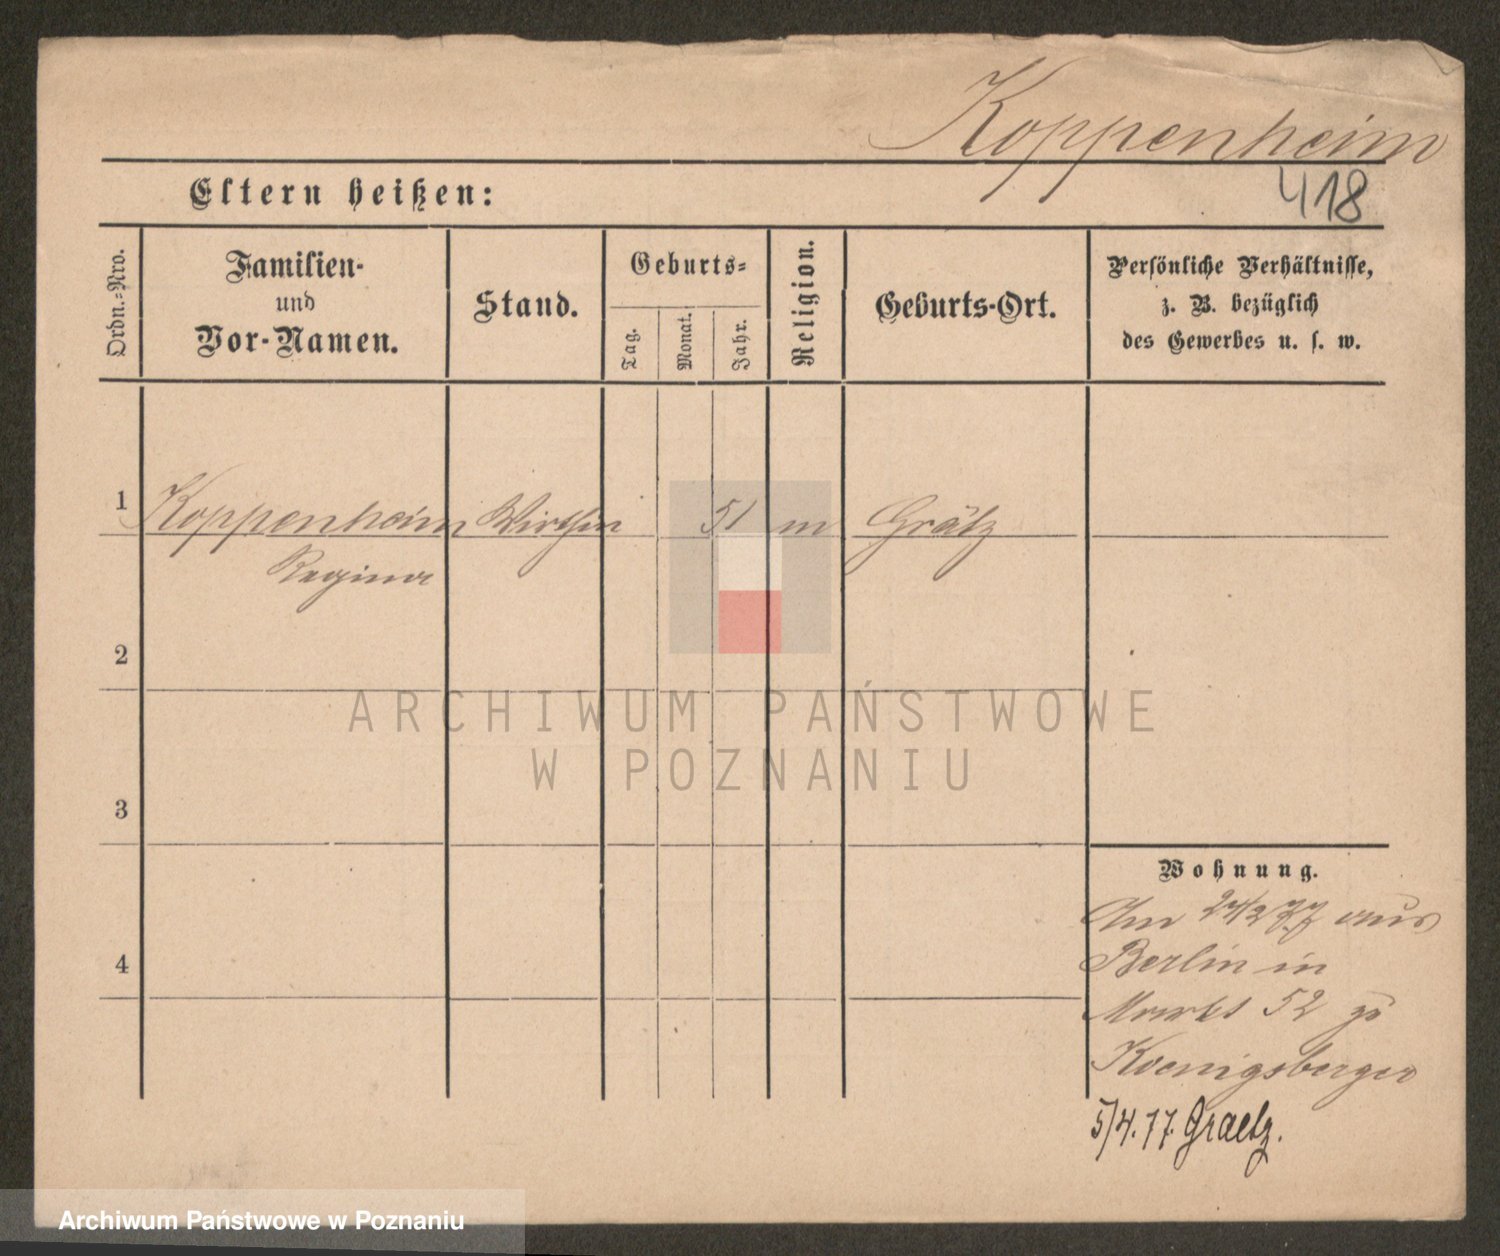 Koppenheim
418
Eltern heißen:
Ordn.=Nro.
Familien-
und
Vor-Namen.
Stand.
Geburts=
Tag.
Monat.
Jahr.
Religion.
Geburts-Ort.
Persönliche Verhältnisse,
z. B. bezüglich
des Gewerbes u. s. w.
1 Koppenheim Wirthin 51 m Grätz
Regina
2
3
4
Wohnung.
Am 24/2 77 aus
Berlin in
Markt 52 zu
Koenigsberger
5/4.77. Graetz.
ARCHIWUM PAŃSTWOWE
W POZNANIU
Archiwum Państwowe w Poznaniu